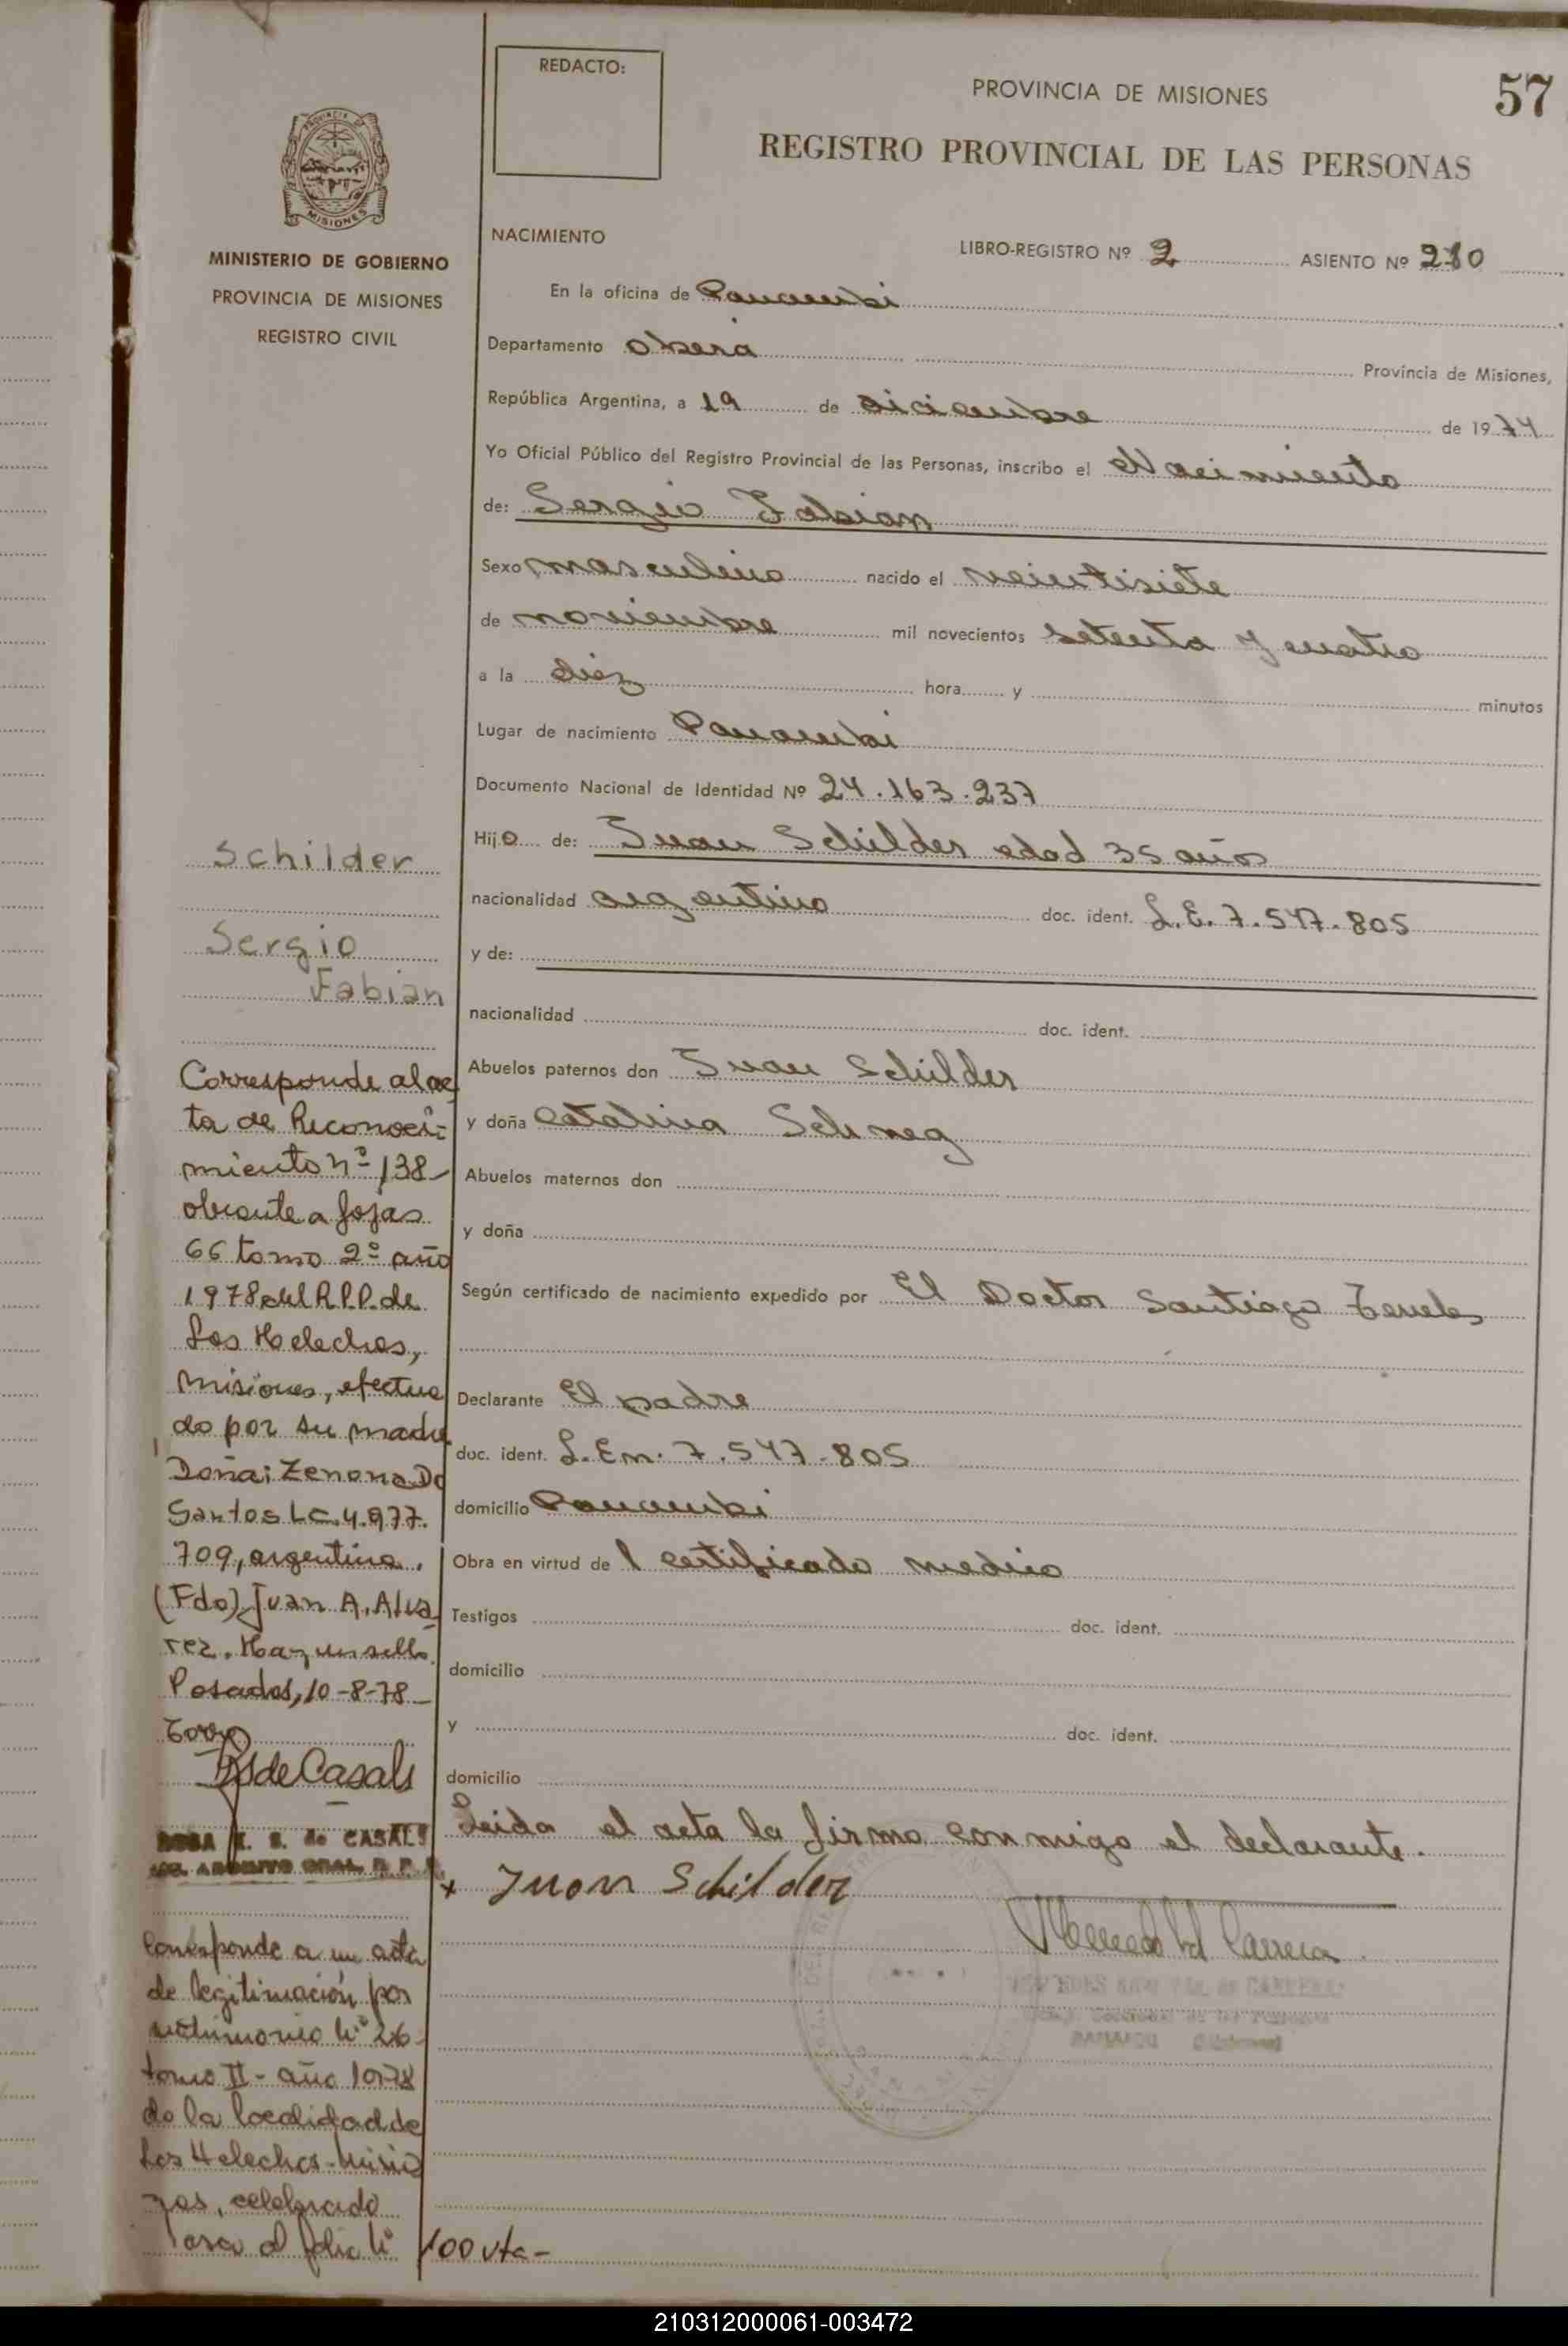 REDACTO:
PROVINCIA DE MISIONES
57
REGISTRO PROVINCIAL DE LAS PERSONAS
MISIONES
MINISTERIO DE GOBIERNO
PROVINCIA DE MISIONES
REGISTRO CIVIL
NACIMIENTO
LIBRO-REGISTRO Nº 2 ASIENTO Nº 210
En la oficina de Panambi
Departamento Obera Provincia de Misiones,
República Argentina, a 19 de diciembre de 1974
Yo Oficial Público del Registro Provincial de las Personas, inscribo el Nacimiento
de: Sergio Fabian
Sexo masculino nacido el veintisiete
de noviembre mil novecientos setenta y cuatro
a la diez hora y minutos
Lugar de nacimiento Panambi
Documento Nacional de Identidad Nº 24.163.237
Hijo de: Juan Schilder edad 35 años
nacionalidad argentino doc. ident. L.E. 7.547.805
y de:
nacionalidad doc. ident.
Abuelos paternos don Juan Schilder
y doña Catalina
Abuelos maternos don
y doña
Según certificado de nacimiento expedido por El Doctor Santiago
Declarante El padre
doc. ident. L.Em. 7.547.805
domicilio Panambi
Obra en virtud de 1 certificado medico
Testigos doc. ident.
domicilio
y doc. ident.
domicilio
Leida el acta la firma conmigo el declarante.
x Juan Schilder
Schilder
Sergio
Fabian
Corresponde al ac
ta de Reconoci-
miento nº 138
obrante a fojas
66 tomo 2º año
1978 del R.P.P. de
Los Helechos,
Misiones, efectua
do por su madre
Doña: Zenona Do
Santos L.C. 4.977.
709, argentina.
(Fdo) Juan A. Alva
rez. Hay un sello.
Posadas, 10-8-78
de Casals
ROSA de CASALS
Corresponde a un acta
de legitimación por
matrimonio Nº 26
tomo II - año 1978
de la localidad de
Los Helechos - Misio
nes, celebrado
Pasa al folio Nº 100 vta-
210312000061-003472